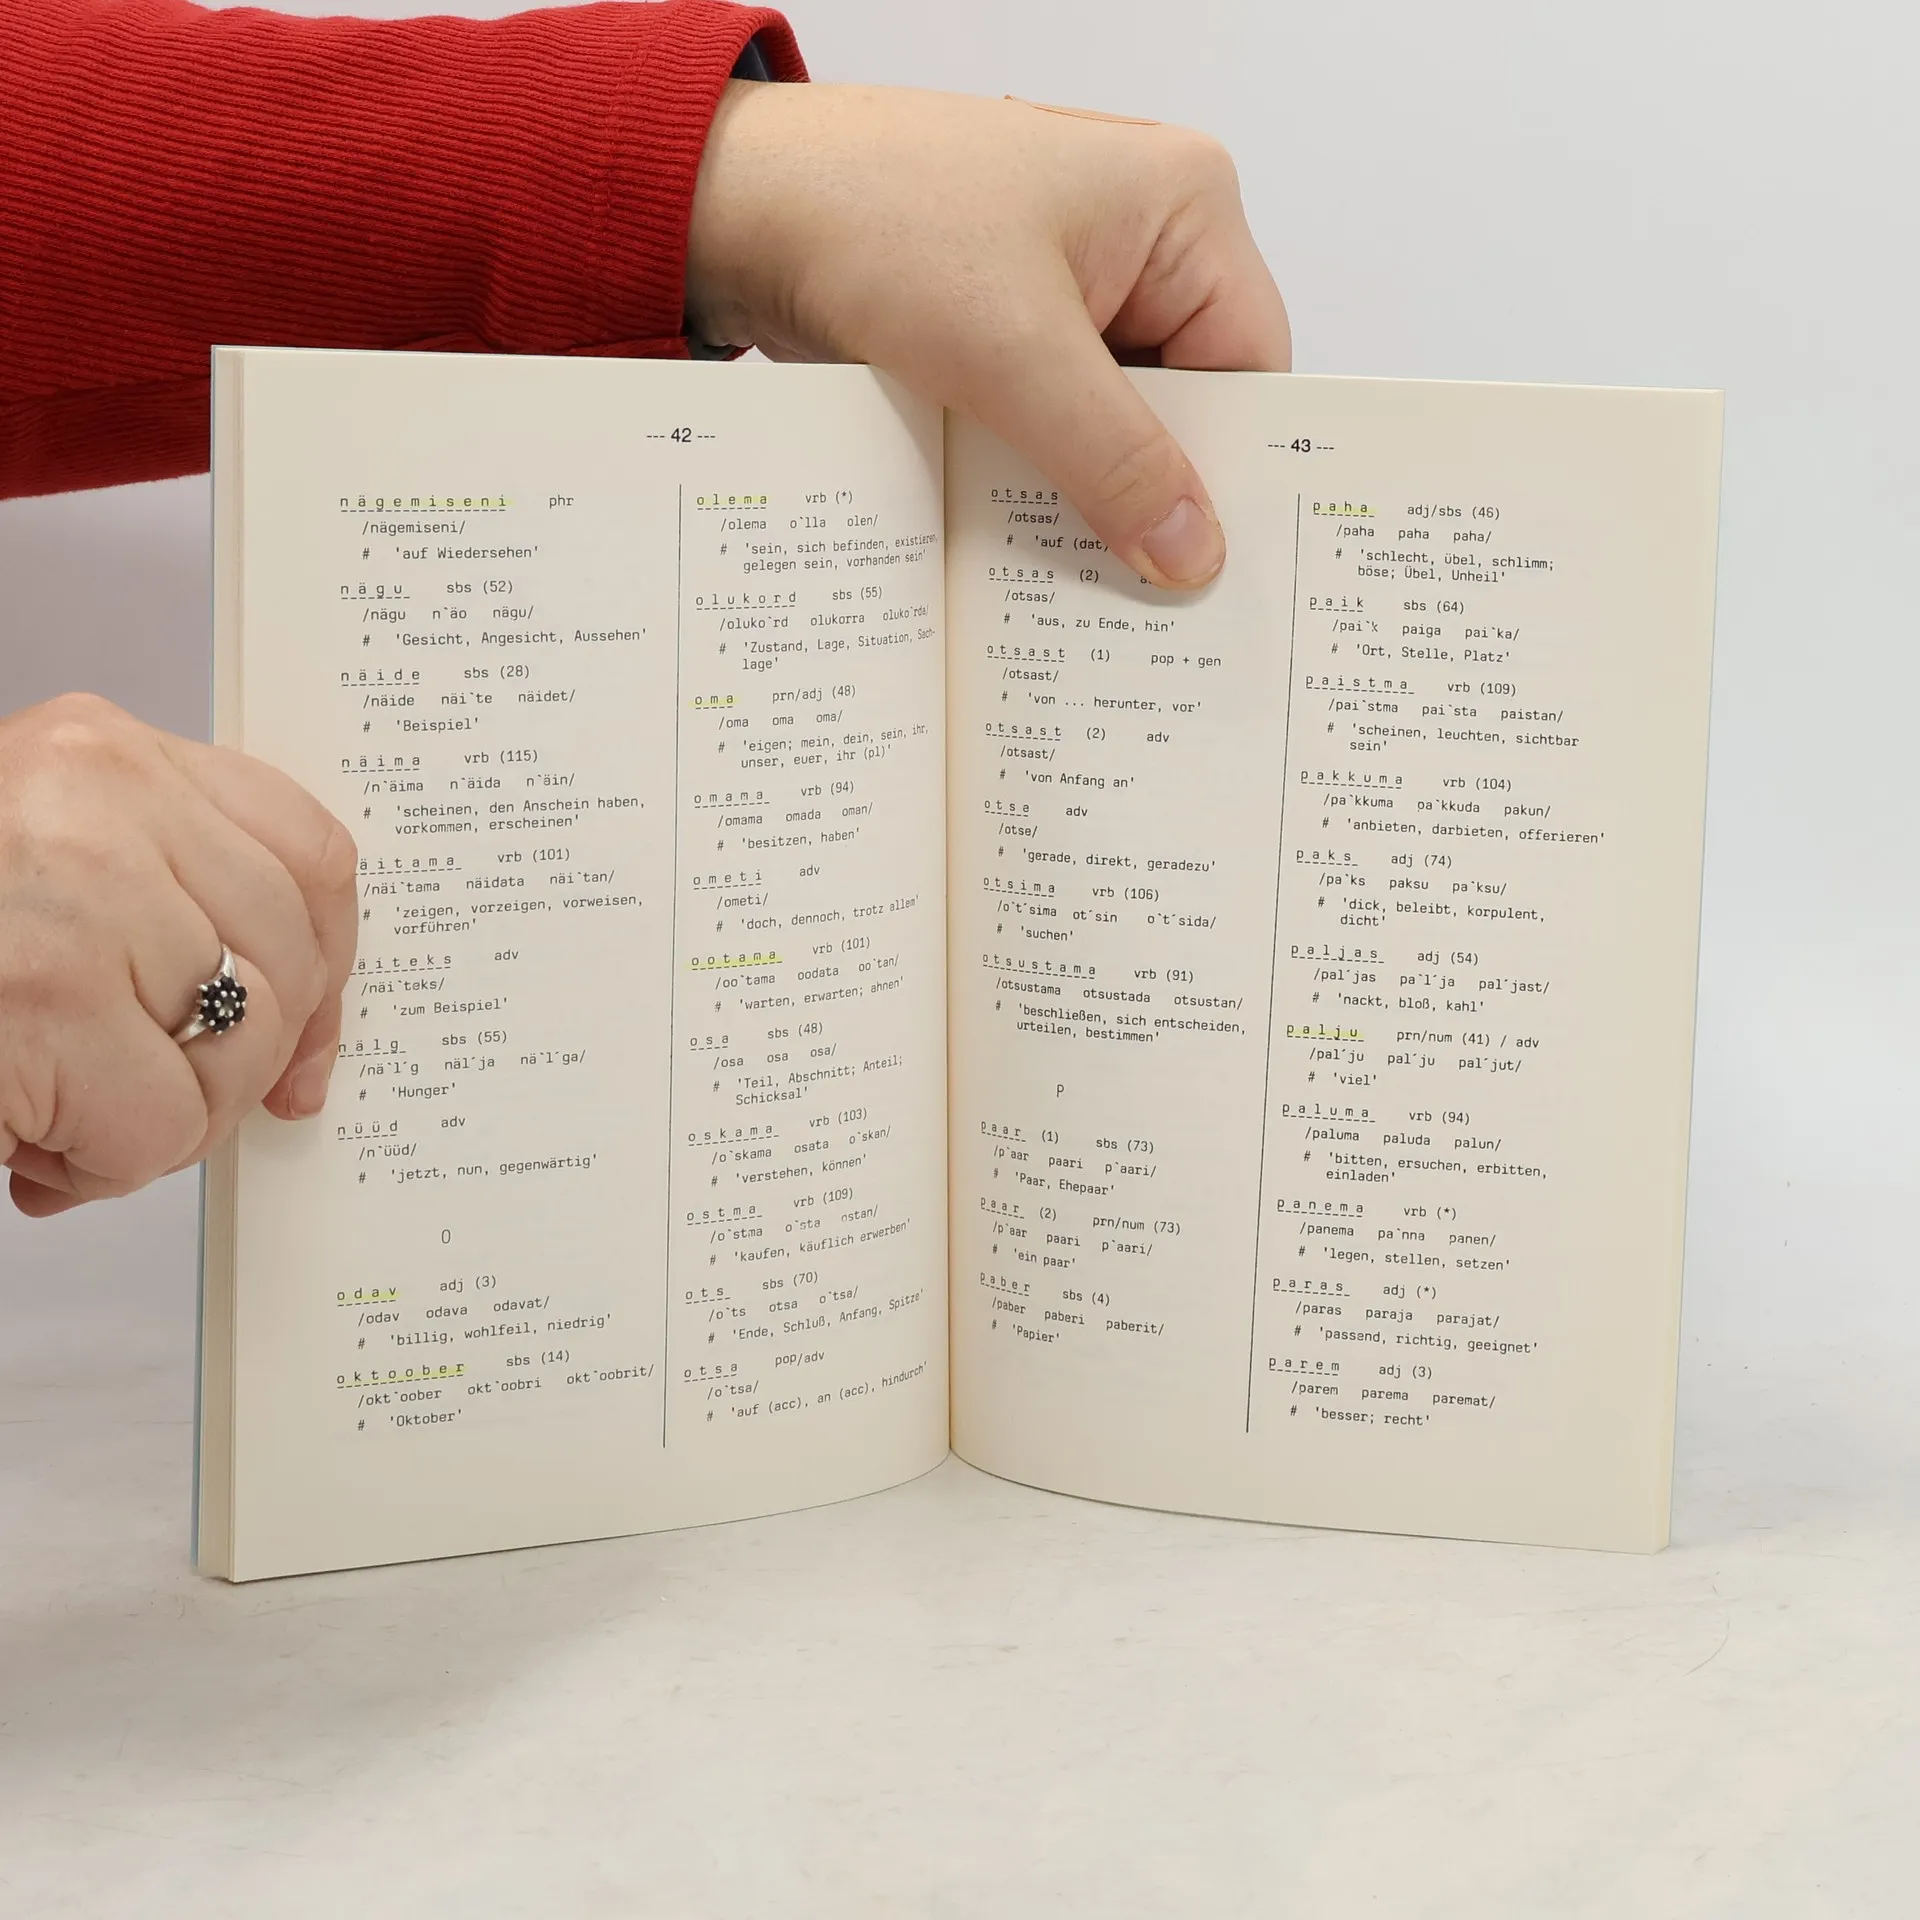 --- 42 ---
n ä g e m i s e n i phr
/nägemiseni/
# 'auf Wiedersehen'
n ä g u sbs (52)
/nägu n`äo nägu/
# 'Gesicht, Angesicht, Aussehen'
n ä i d e sbs (28)
/näide näi`te näidet/
# 'Beispiel'
n ä i m a vrb (115)
/n`äima n`äida n`äin/
# 'scheinen, den Anschein haben,
vorkommen, erscheinen'
ä i t a m a vrb (101)
/näi`tama näidata näi`tan/
# 'zeigen, vorzeigen, vorweisen,
vorführen'
ä i t e k s adv
/näi`teks/
# 'zum Beispiel'
n ä l g sbs (55)
/nä`l´g näl´ja nä`l´ga/
# 'Hunger'
n ü ü d adv
/n`üüd/
# 'jetzt, nun, gegenwärtig'
O
o d a v adj (3)
/odav odava odavat/
# 'billig, wohlfeil, niedrig'
o k t o o b e r sbs (14)
/okt`oober okt`oobri okt`oobrit/
# 'Oktober'
o l e m a vrb (*)
/olema o`lla olen/
# 'sein, sich befinden, existieren,
gelegen sein, vorhanden sein'
o l u k o r d sbs (55)
/oluko`rd olukorra oluko`rda/
# 'Zustand, Lage, Situation, Sach-
lage'
o m a prn/adj (48)
/oma oma oma/
# 'eigen; mein, dein, sein, ihr,
unser, euer, ihr (pl)'
o m a m a vrb (94)
/omama omada oman/
# 'besitzen, haben'
o m e t i adv
/ometi/
# 'doch, dennoch, trotz allem'
o o t a m a vrb (101)
/oo`tama oodata oo`tan/
# 'warten, erwarten; ahnen'
o s a sbs (48)
/osa osa osa/
# 'Teil, Abschnitt; Anteil;
Schicksal'
o s k a m a vrb (103)
/o`skama osata o`skan/
# 'verstehen, können'
o s t m a vrb (109)
/o`stma o`sta ostan/
# 'kaufen, käuflich erwerben'
o t s sbs (70)
/o`ts otsa o`tsa/
# 'Ende, Schluß, Anfang, Spitze'
o t s a pop/adv
/o`tsa/
# 'auf (acc), an (acc), hindurch'
--- 43 ---
o t s a s
/otsas/
# 'auf (dat),
o t s a s (2)
/otsas/
# 'aus, zu Ende, hin'
o t s a s t (1) pop + gen
/otsast/
# 'von ... herunter, vor'
o t s a s t (2) adv
/otsast/
# 'von Anfang an'
o t s e adv
/otse/
# 'gerade, direkt, geradezu'
o t s i m a vrb (106)
/o`t´sima ot´sin o`t´sida/
# 'suchen'
o t s u s t a m a vrb (91)
/otsustama otsustada otsustan/
# 'beschließen, sich entscheiden,
urteilen, bestimmen'
P
p a a r (1) sbs (73)
/p`aar paari p`aari/
# 'Paar, Ehepaar'
p a a r (2) prn/num (73)
/p`aar paari p`aari/
# 'ein paar'
p a b e r sbs (4)
/paber paberi paberit/
# 'Papier'
p a h a adj/sbs (46)
/paha paha paha/
# 'schlecht, übel, schlimm;
böse; Übel, Unheil'
p a i k sbs (64)
/pai`k paiga pai`ka/
# 'Ort, Stelle, Platz'
p a i s t m a vrb (109)
/pai`stma pai`sta paistan/
# 'scheinen, leuchten, sichtbar
sein'
p a k k u m a vrb (104)
/pa`kkuma pa`kkuda pakun/
# 'anbieten, darbieten, offerieren'
p a k s adj (74)
/pa`ks paksu pa`ksu/
# 'dick, beleibt, korpulent,
dicht'
p a l j a s adj (54)
/pal´jas pa`l´ja pal´jast/
# 'nackt, bloß, kahl'
p a l j u prn/num (41) / adv
/pal´ju pal´ju pal´jut/
# 'viel'
p a l u m a vrb (94)
/paluma paluda palun/
# 'bitten, ersuchen, erbitten,
einladen'
p a n e m a vrb (*)
/panema pa`nna panen/
# 'legen, stellen, setzen'
p a r a s adj (*)
/paras paraja parajat/
# 'passend, richtig, geeignet'
p a r e m adj (3)
/parem parema paremat/
# 'besser; recht'